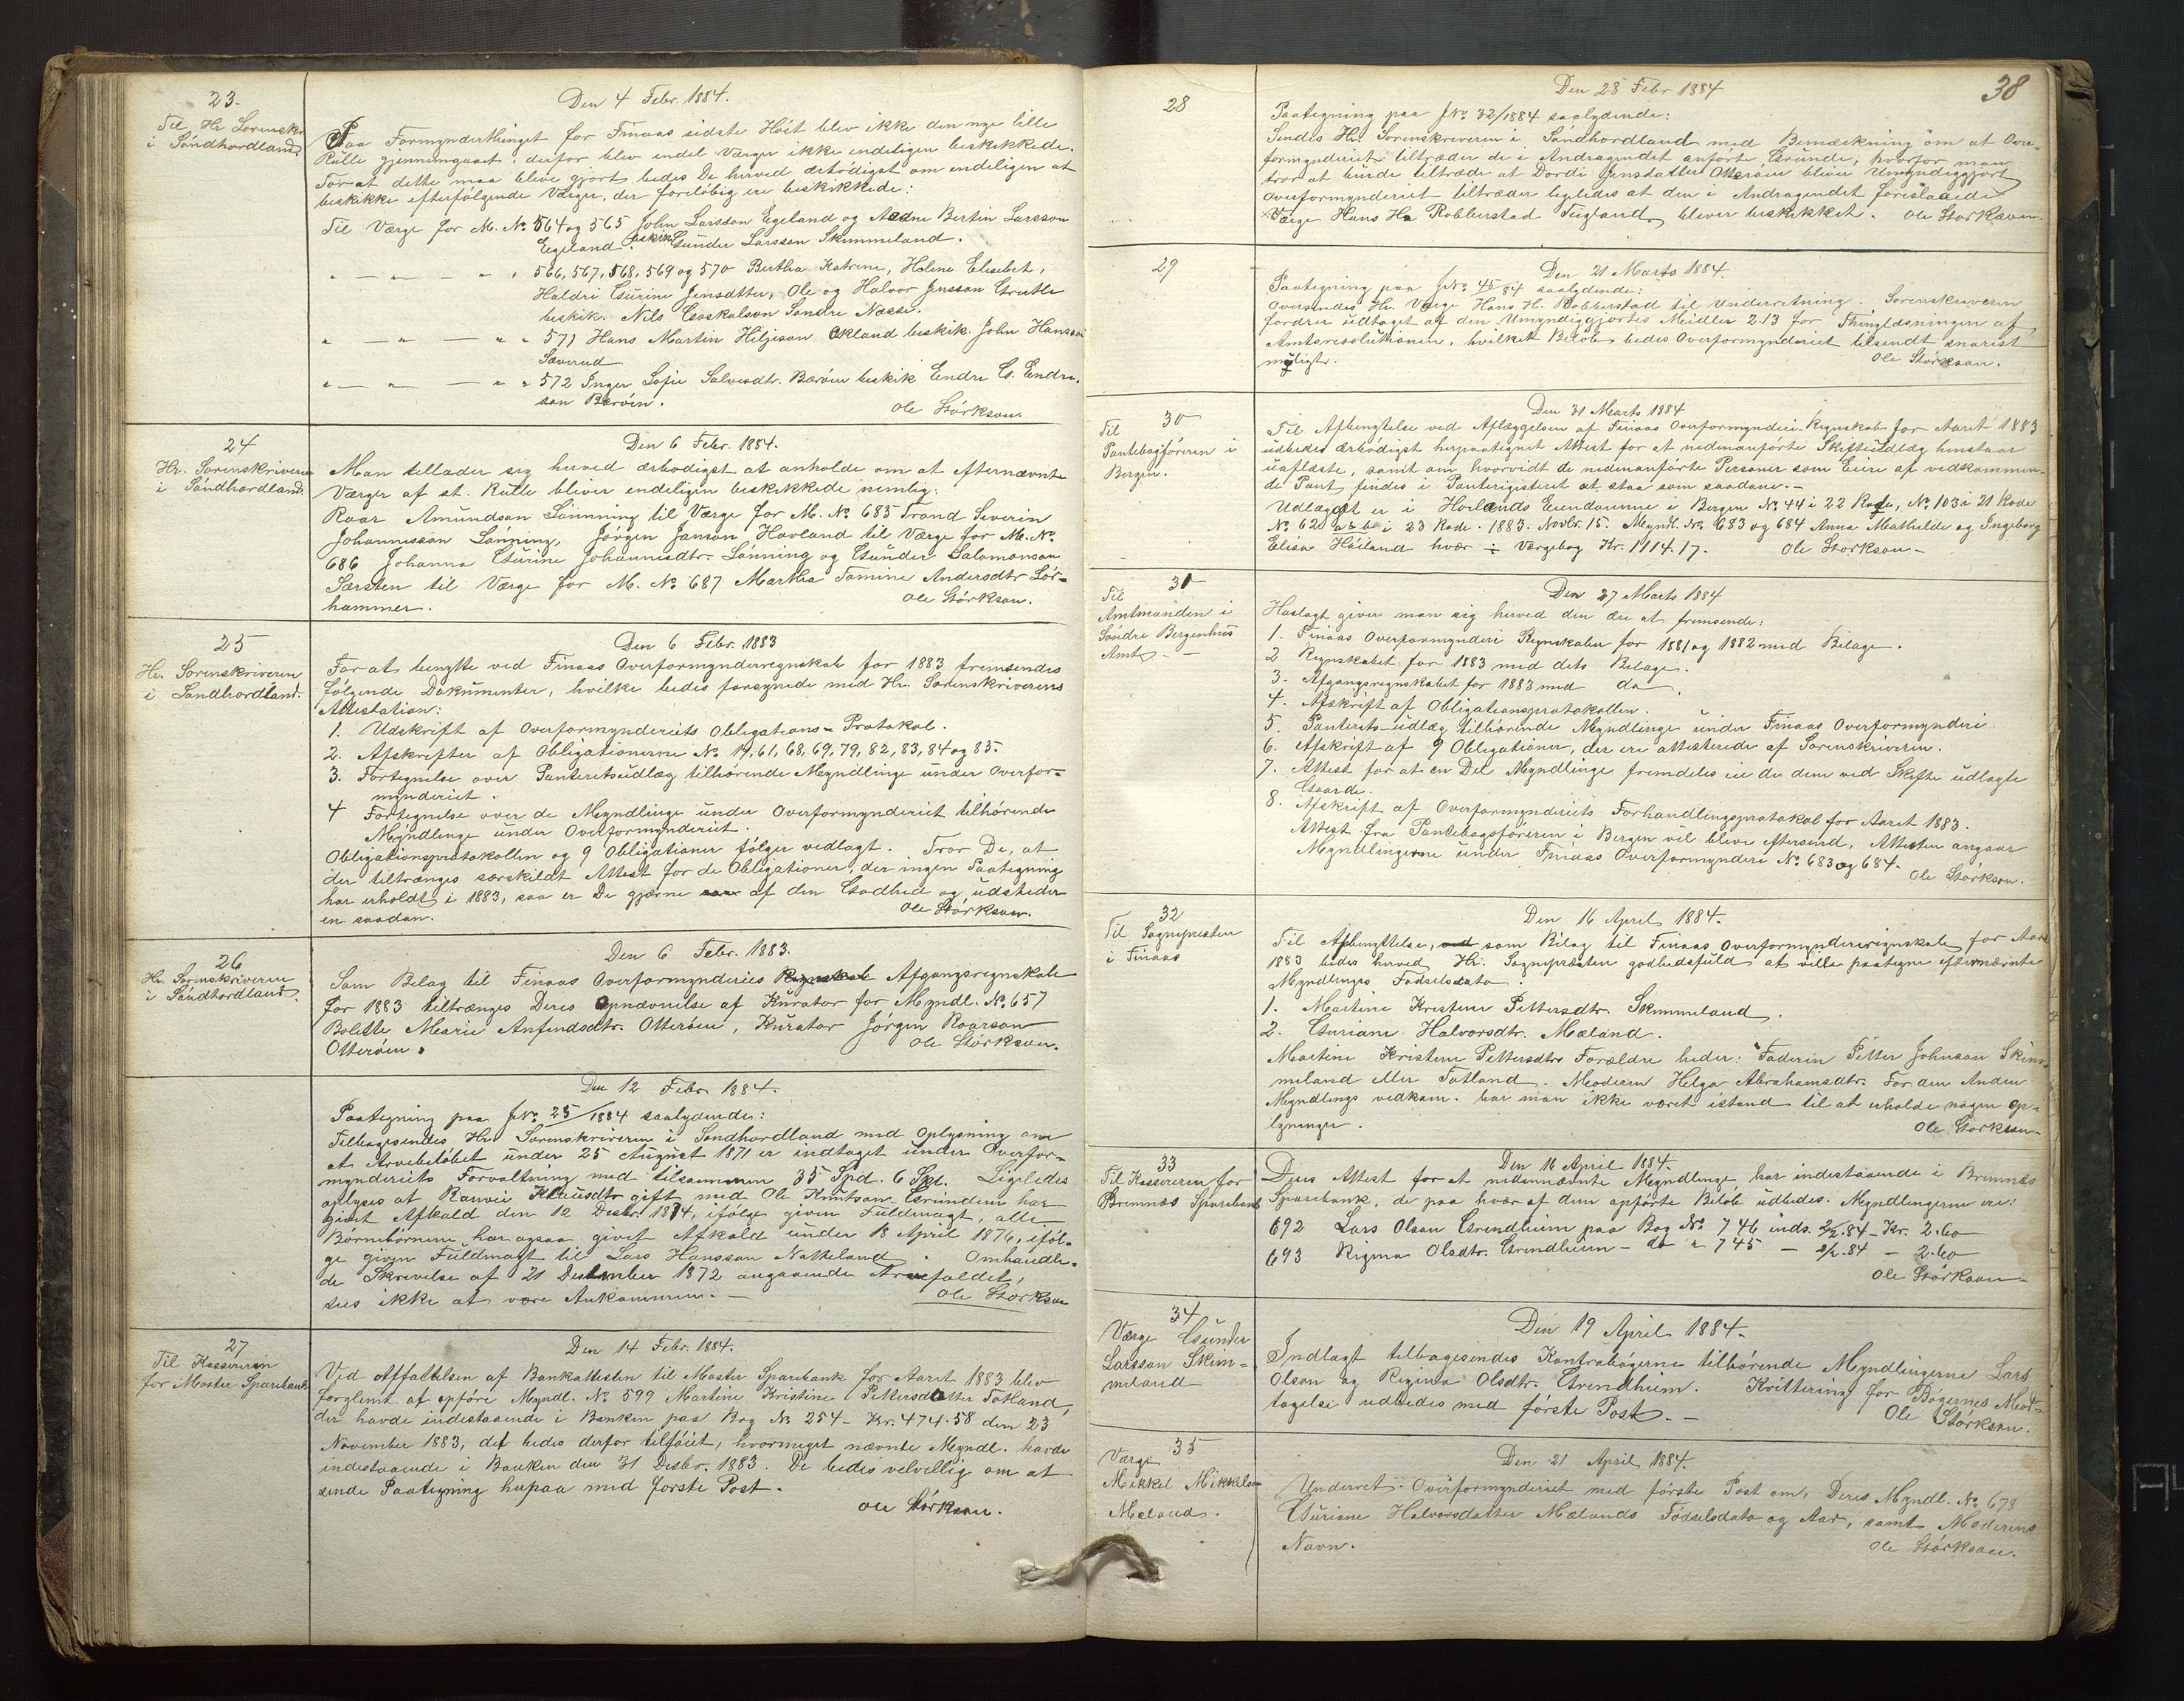 23.
Til Hr Sorenskr.
i Söndhordland.
Den 4 Febr. 1884.
Paa Formynderthinget for Finaas sidste Höst blev ikke den nye lille
Rulle gjennemgaaet, derfor blev endel Værger ikke endeligen beskikkede.
For at dette maa blive gjort bedes De herved ærbödigst om endeligen at
beskikke efterfölgende Værger, der forelöbig ere beskikkede:
Til Værge for M. No 564 og 565 John Larsson Egeland og Aadne Bertin Larsson
Egeland beskik Gunder Larsson Skimmeland.
" — " — " " 566, 567, 568, 569 og 570 Bertha Katrine, Helene Elisebet,
Haldri Gurine Jensdtter, Ole og Halvor Jensson
beskik. Nils Søndre Næsse.
" — " — " " 571 Hans Martin Hiljeson Økland beskik. John Hansson
Sæverud
" — " — " " 572 Inger Sofie Salvesdtr. Børöen beskik Endre G. Endre-
son Børöen.
Ole Störkson.
24
Hr. Sorenskriveren
i Söndhordland.
Den 6 Febr. 1884.
Man tillader sig herved ærbodigst at anholde om at efternævnte
Værger af st. Rulle bliver endeligen beskikkede nemlig:
Roar Amundson Lönning til Værge for M. No. 685 Trond Severin
Johannesson Lönning, Jörgen Janson Hovland til Værge for M. No.
686 Johanna Gurine Johannesdtr. Lönning og Gunder Salomonson
Særsten til Værge for M. No 687 Martha Tomine Andersdtr Lör-
hammer.
Ole Störkson.
25
Hr. Sorenskriveren
i Söndhordland.
Den 6 Febr. 1883
For at benytte ved Finaas Overformynderregnskab for 1883 fremsendes
fölgende Dokumenter, hvilke bedes forsynede med Hr. Sorenskriverens
Attestation:
1. Udskrift af Overformynderiets Obligations-Protokol.
2. Afskrifter af Obligationerne No 14, 61, 68, 69, 79, 82, 83, 84 og 85.
3. Fortegnelse over Panteretsudlæg tilhörende Myndlinge under Overfor-
mynderiet.
4 Fortegnelse over de Myndlinge under Overformynderiet tilhörende
Myndlinge under Overformynderiet.
Obligationsprotokollen og 9 Obligationer fölger vedlagt. Tror De, at
der tiltrænges særskildt Attest for de Obligationer, der ingen Paategning
har erholdt i 1883, saa er De gjærne af den Godhed og udsteder
en saadan.
Ole Störkson.
26
Hr. Sorenskriveren
i Söndhordland.
Den 6 Febr. 1883.
Som Bilag til Finaas Overformynderies Regnskab Afgangsregnskab
for 1883 tiltrænges Deres Opnævnelse af Kurator for Myndl. No. 657
Bolette Marie Anfindsdtr. Otteröen, Kurator Jörgen Roarson
Otteröen.
Ole Störkson.
Den 12 Febr 1884.
Paategning paa JNo. 25/1884 saalydende:
Tilbagesendes Hr. Sorenskriveren i Söndhordland med Oplysning om
at Arvebelöbet under 25 August 1871 er indtaget under Overfor-
mynderiets Forvaltning med tilsammen 35 Spd. 6 Sk. Ligeledes
oplyses at Ranvei Klausdtr gift med Ole Knutson Grinden har
givet Afkald den 12 Decbr. 1874, ifölge given Fuldmagt, alle
Börnebörnene har ogsaa givet Afkald under 18 April 1876, iföl-
ge given Fuldmagt til Lars Hansson Natteland. Omhandle-
de Skrivelse af 21 December 1872 angaaende Arvefaldet,
sees ikke at være Ankommen. —
Ole Störkson
27
Til Kassereren
for Moster Sparebank
Den 14 Febr. 1884.
Ved Affattelsen af Bankattesten til Moster Sparebank for Aaret 1883 blev
forglemt at opföre Myndl. No 599 Martine Kristine Pettersdatter Totland,
der havde indestaaende i Banken paa Bog No 254 - Kr. 474.58 den 23
November 1883, det bedes derfor tilföiet, hvormeget nævnte Myndl. havde
indestaaende i Banken den 31 Decbr. 1883. De bedes velvillig om at
sende Paategning herpaa med förste Post.
Ole Störkson.
38
28
Den 28 Febr 1884
Paategning paa JNo 32/1884 saalydende:
Sendes Hr. Sorenskriveren i Söndhordland med Bemærkning om at Over-
formynderiet tiltræder de i Andragendet anförte Grunde, hvorfor man
tror at burde tiltræde at Dordi Jensdatter Otteröen bliver Umyndiggjort
Overformynderiet tiltræder ligeledes at den i Andragendet foreslaaede
Værge Hans H. Robberstad Fugland, bliver beskikket. Ole Störkson.
29
Den 21 Marts 1884.
Paategning paa JNo 45/84 saalydende:
Oversendes Hr. Værge Hans H. Robberstad til Underretning. Sorenskriveren
fordrer udtaget af den Umyndiggjortes Midler 2.13 for Thinglæsningen af
Amtsresolutionen, hvilket Belöb bedes Overformynderiet tilsendt snarest
muligt.
Ole Störkson.
30
Til
Pantebogföreren i
Bergen.
Den 31 Marts 1884
Til Afbenyttelse ved Aflæggelsen af Finaas Overformynderi-Regnskab for Aaret 1883
udbedes ærbödigst herpaategnet Attest for at nedenanförte Skifteudlæg henstaar
uaflæste, samt om hvorvidt de nedenanförte Personer som Eiere af vedkommen-
de Pant findes i Panteregisteret at staa som saadane. —
Udlægget er i Horlands Eiendomme i Bergen No. 44 i 22 Rode, No. 103 i 21 Rode
No. 62 a & b i 23 Rode. 1883. Novbr. 15. Myndl. No. 683 og 684 Anna Mathilde og Ingeborg
Elisa Höiland hvær ÷ Værgebog Kr. 1114.17.
Ole Störkson —
31
Til
Amtmanden i
Söndre Bergenhus
Amt. —
Den 27 Marts 1884
Hoslagt giver man sig herved den ære at fremsende:
1. Finaas Overformynderi Regnskaber for 1881 og 1882 med Bilage.
2 Regnskabet for 1883 med dets Bilage.
3. Afgangsregnskabet for 1883 med do.
4. Afskrift af Obligationsprotokollen.
5. Panterets-udlæg tilhörende Myndlinge under Finaas Overformynderi
6. Afskrift af 9 Obligationer, der ere attesterede af Sorenskriveren.
7. Attest for at en Del Myndlinge fremdeles eie de dem ved Skifte udlagte
Gaarde.
8. Afskrift af Overformynderiets Forhandlingsprotokol for Aaret 1883.
Attest fra Pantebogsföreren i Bergen vil blive eftersend, Attesten angaar
Myndlingerne under Finaas Overformynderi No. 683 og 684.
Ole Störkson.
32
Til Sognepresten
i Finaas
Den 16 April 1884.
Til Afbenyttelse, ved som Bilag til Finaas Overformynderiregnskab for Aar
1883 bedes herved Hr. Sognepræsten godhedsfuld at ville paategne efternævnte
Myndlinges Födselsdato.
1. Martine Kristine Pettersdtr. Skimmeland.
2. Guriane Halvorsdtr. Mæland.
Martine Kristine Pettersdtrs Forældre heder: Faderen Petter Johnson Skim-
meland eller Totland. Moderen Helga Abrahamsdtr. For den Anden
Myndlings vedkom. har man ikke været istand til at erholde nogen Op-
lysninger.
Ole Störkson.
33
Til Kassereren for
Bremnæs Sparebank
Den 16 April 1884.
Deres Attest for at nedennævnte Myndlinge, har indestaaende i Bremnæs
Sparebank, de paa hvær af dem opförte Belöb udbedes. Myndlingerne ere:
692 Lars Olson Grendheim paa Bog No 746 inds. 2/2.84 - Kr. 2.60
693 Regina Olsdtr. Grendheim - do " 745 — 2/2.84 - 2.60
Ole Störkson
34
Værge Gunder
Larsson Skim-
meland
Den 19 April 1884.
Indlagt tilbagesendes Kontrabögerne tilhörende Myndlingerne Lars
Olson og Regina Olsdtr. Grendheim. Kvittering for Bögernes Mod-
tagelse udbedes med förste Post. —
Ole Störkson.
35
Værge
Mikkel Mikkelson
Mæland.
Den 21 April 1884.
Underret Overformynderiet med förste Post om, Deres Myndl. No. 678
Guriane Halvorsdatter Mælands Födselsdato og Aar, samt Moderens
Navn.
Ole Störkson.